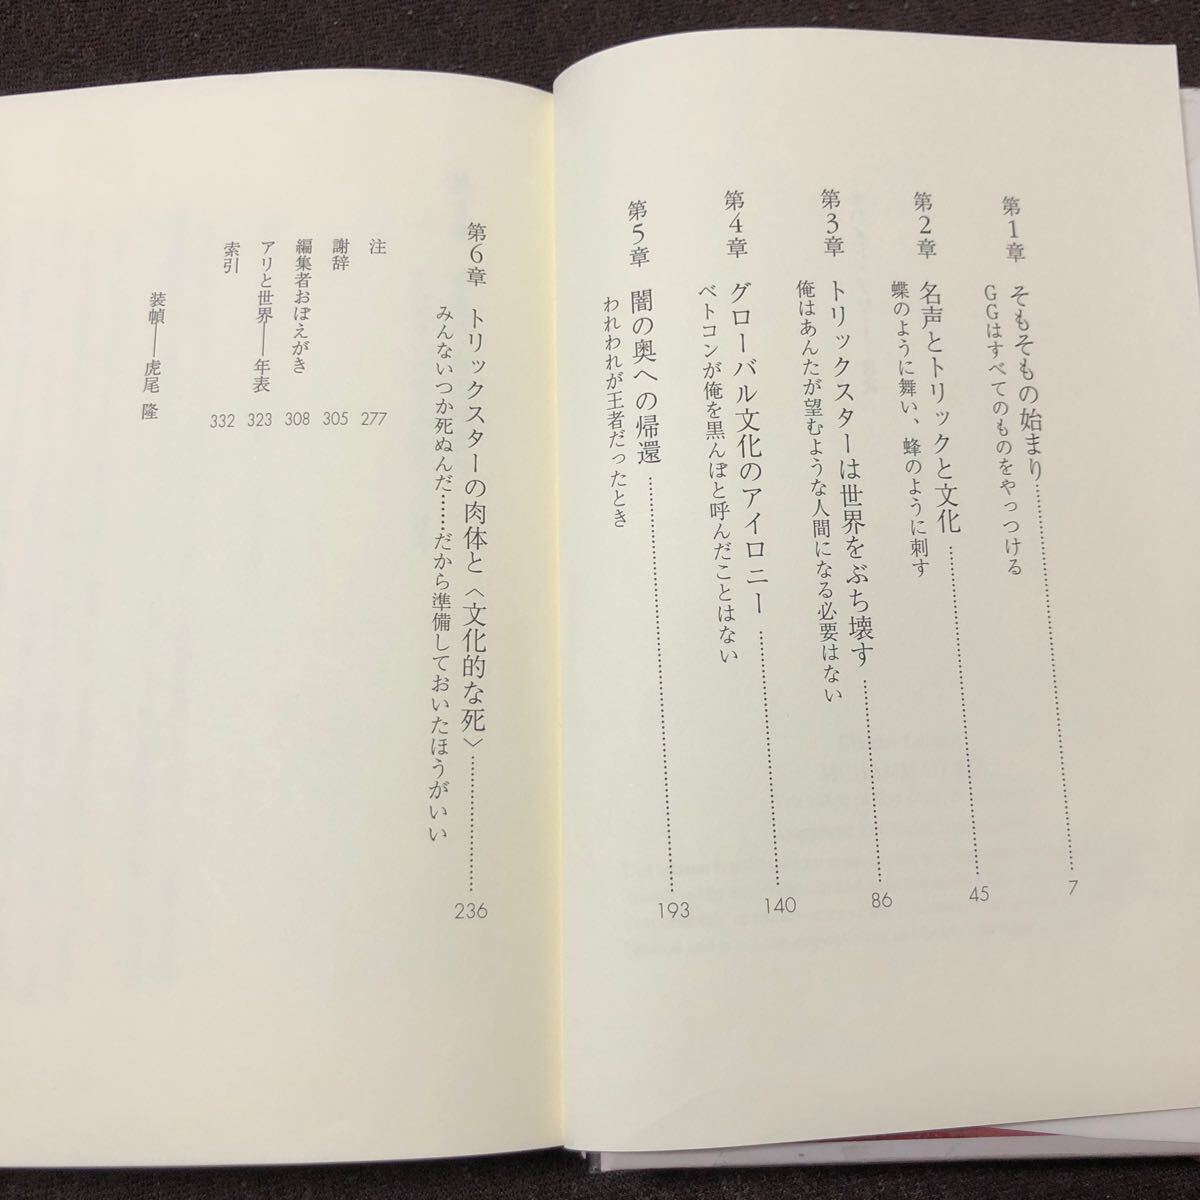 第1章 そもそもの始まり……7
GGはすべてのものをやっつける
第2章 名声とトリックと文化……45
蝶のように舞い、蜂のように刺す
第3章 トリックスターは世界をぶち壊す……86
俺はあんたが望むような人間になる必要はない
第4章 グローバル文化のアイロニー……140
ベトコンが俺を黒んぼと呼んだことはない
第5章 闇の奥への帰還……193
われわれが王者だったとき
第6章 トリックスターの肉体と〈文化的な死〉……236
みんないつか死ぬんだ……だから準備しておいたほうがいい
注 277
謝辞 305
編集者おぼえがき 308
アリと世界——年表 323
索引 332
装幀——虎尾 隆